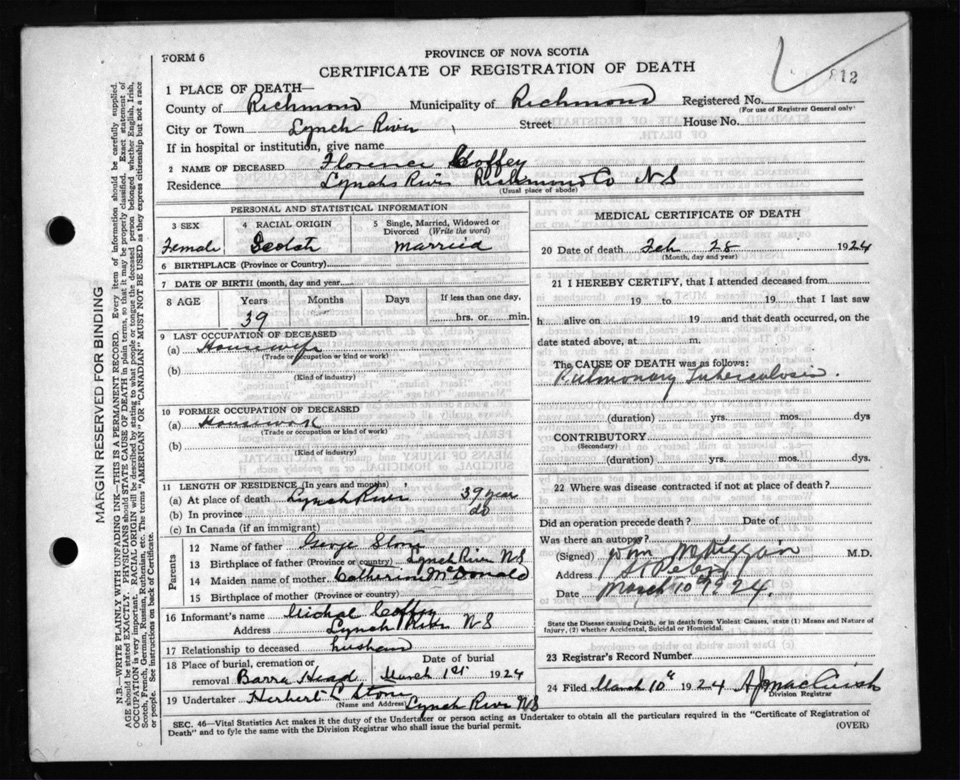 FORM 6
PROVINCE OF NOVA SCOTIA
CERTIFICATE OF REGISTRATION OF DEATH
812
1 PLACE OF DEATH—
County of Richmond Municipality of Richmond Registered No.
(For use of Registrar General only)
City or Town Lynch River Street House No.
If in hospital or institution, give name
2 NAME OF DECEASED Florence Coffey
Residence Lynchs River Richmond Co N S
(Usual place of abode)
PERSONAL AND STATISTICAL INFORMATION
3 SEX
Female
4 RACIAL ORIGIN
Scotch
5 Single, Married, Widowed or Divorced (Write the word)
Married
6 BIRTHPLACE (Province or Country)
7 DATE OF BIRTH (month, day and year)
8 AGE Years Months Days If less than one day,
39 hrs. or min.
9 LAST OCCUPATION OF DECEASED
(a) Housewife
(Trade or occupation or kind or work)
(b)
(Kind of industry)
10 FORMER OCCUPATION OF DECEASED
(a) Housework
(Trade or occupation or kind or work)
(b)
(Kind of industry)
11 LENGTH OF RESIDENCE (In years and months)
(a) At place of death Lynch River 39 year
(b) In province do
(c) In Canada (if an immigrant)
Parents
12 Name of father George Stone
13 Birthplace of father (Province or country) Lynch River N S
14 Maiden name of mother Catherine McDonald
15 Birthplace of mother (Province or country)
16 Informant's name Michal Coffey
Address Lynch River N S
17 Relationship to deceased husband
18 Place of burial, cremation or removal Barra Head
Date of burial March 1st 1924
19 Undertaker Herbert L Stone
(Name and Address) Lynch River N S
MEDICAL CERTIFICATE OF DEATH
20 Date of death Feb 28 1924
(Month, day and year)
21 I HEREBY CERTIFY, that I attended deceased from
19 to 19 that I last saw
h alive on 19 and that death occurred, on
date stated above, at m.
The CAUSE OF DEATH was as follows:
Pulmonary Tuberculosis.
(duration) yrs. mos. dys
CONTRIBUTORY
(Secondary)
(duration) yrs. mos. dys.
22 Where was disease contracted if not at place of death?
Did an operation precede death? Date of
Was there an autopsy?
(Signed) M.D.
Address St Peters
Date March 10 1924.
State the Disease causing Death, or in death from Violent Causes, state (1) Means and Nature of Injury, (2) whether Accidental, Suicidal or Homicidal.
23 Registrar's Record Number
24 Filed March 10th 1924
Division Registrar
SEC. 46—Vital Statistics Act makes it the duty of the Undertaker or person acting as Undertaker to obtain all the particulars required in the "Certificate of Registration of
Death" and to fyle the same with the Division Registrar who shall issue the burial permit. (OVER)
MARGIN RESERVED FOR BINDING
N.B.—WRITE PLAINLY WITH UNFADING INK—THIS IS A PERMANENT RECORD. Every item of information should be carefully supplied.
AGE should be stated EXACTLY. PHYSICIANS should STATE CAUSE OF DEATH in plain terms, so that it may be properly classified. Exact statement of
OCCUPATION is very important. RACIAL ORIGIN will be described by stating to what people or tongue the deceased person belonged whether English, Irish,
Scotch, French, German, Russian, Ruthenian, etc. The terms "AMERICAN" or "CANADIAN" MUST NOT BE USED as they express citizenship but not a race
or people. See instructions on back of Certificate.